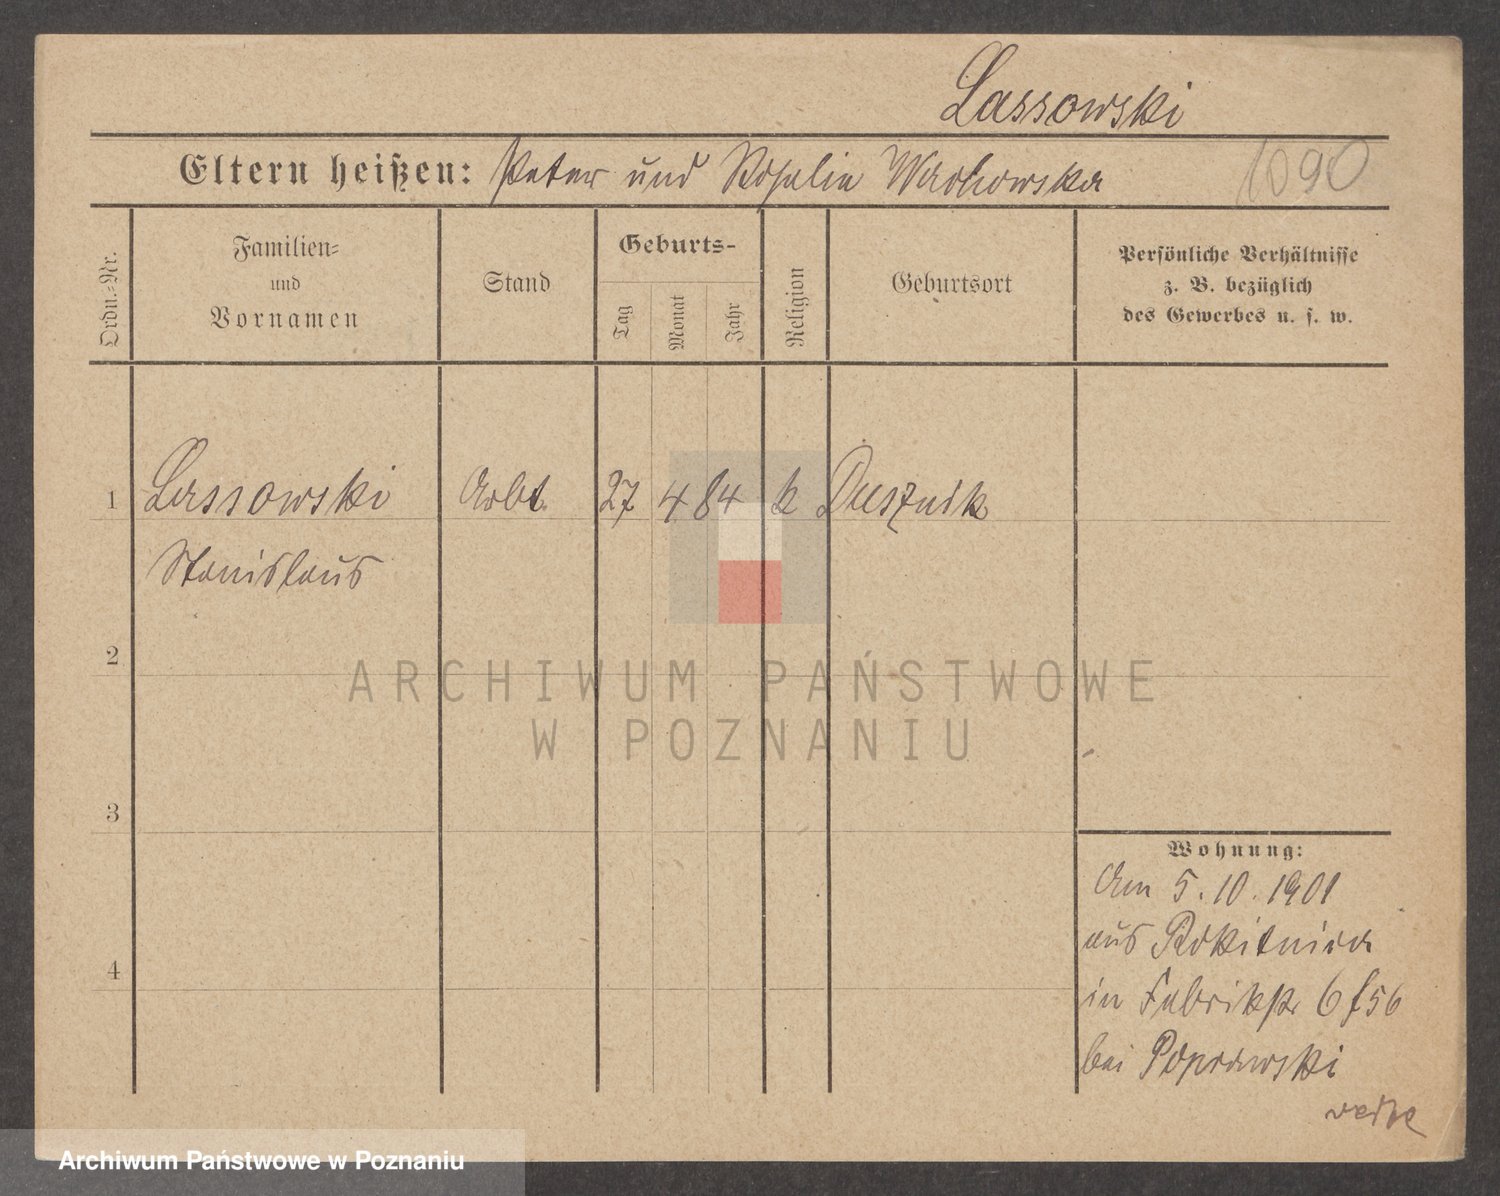 Lassowski
Eltern heißen: Peter und Rosalie Wachowska
1090
Ordn.=Nr.
Familien=
und
Vornamen
Stand
Geburts-
Tag
Monat
Jahr
Religion
Geburtsort
Persönliche Verhältnisse
z. B. bezüglich
des Gewerbes u. s. w.
1 Lassowski Arbt. 27 4 84 k Dusznik
Stanislaus
2
3
4
Wohnung:
Am 5.10.1901
aus Rokitnica
in Fabrikstr 6 f56
bei Poprawski
ARCHIWUM PAŃSTWOWE
W POZNANIU
Archiwum Państwowe w Poznaniu